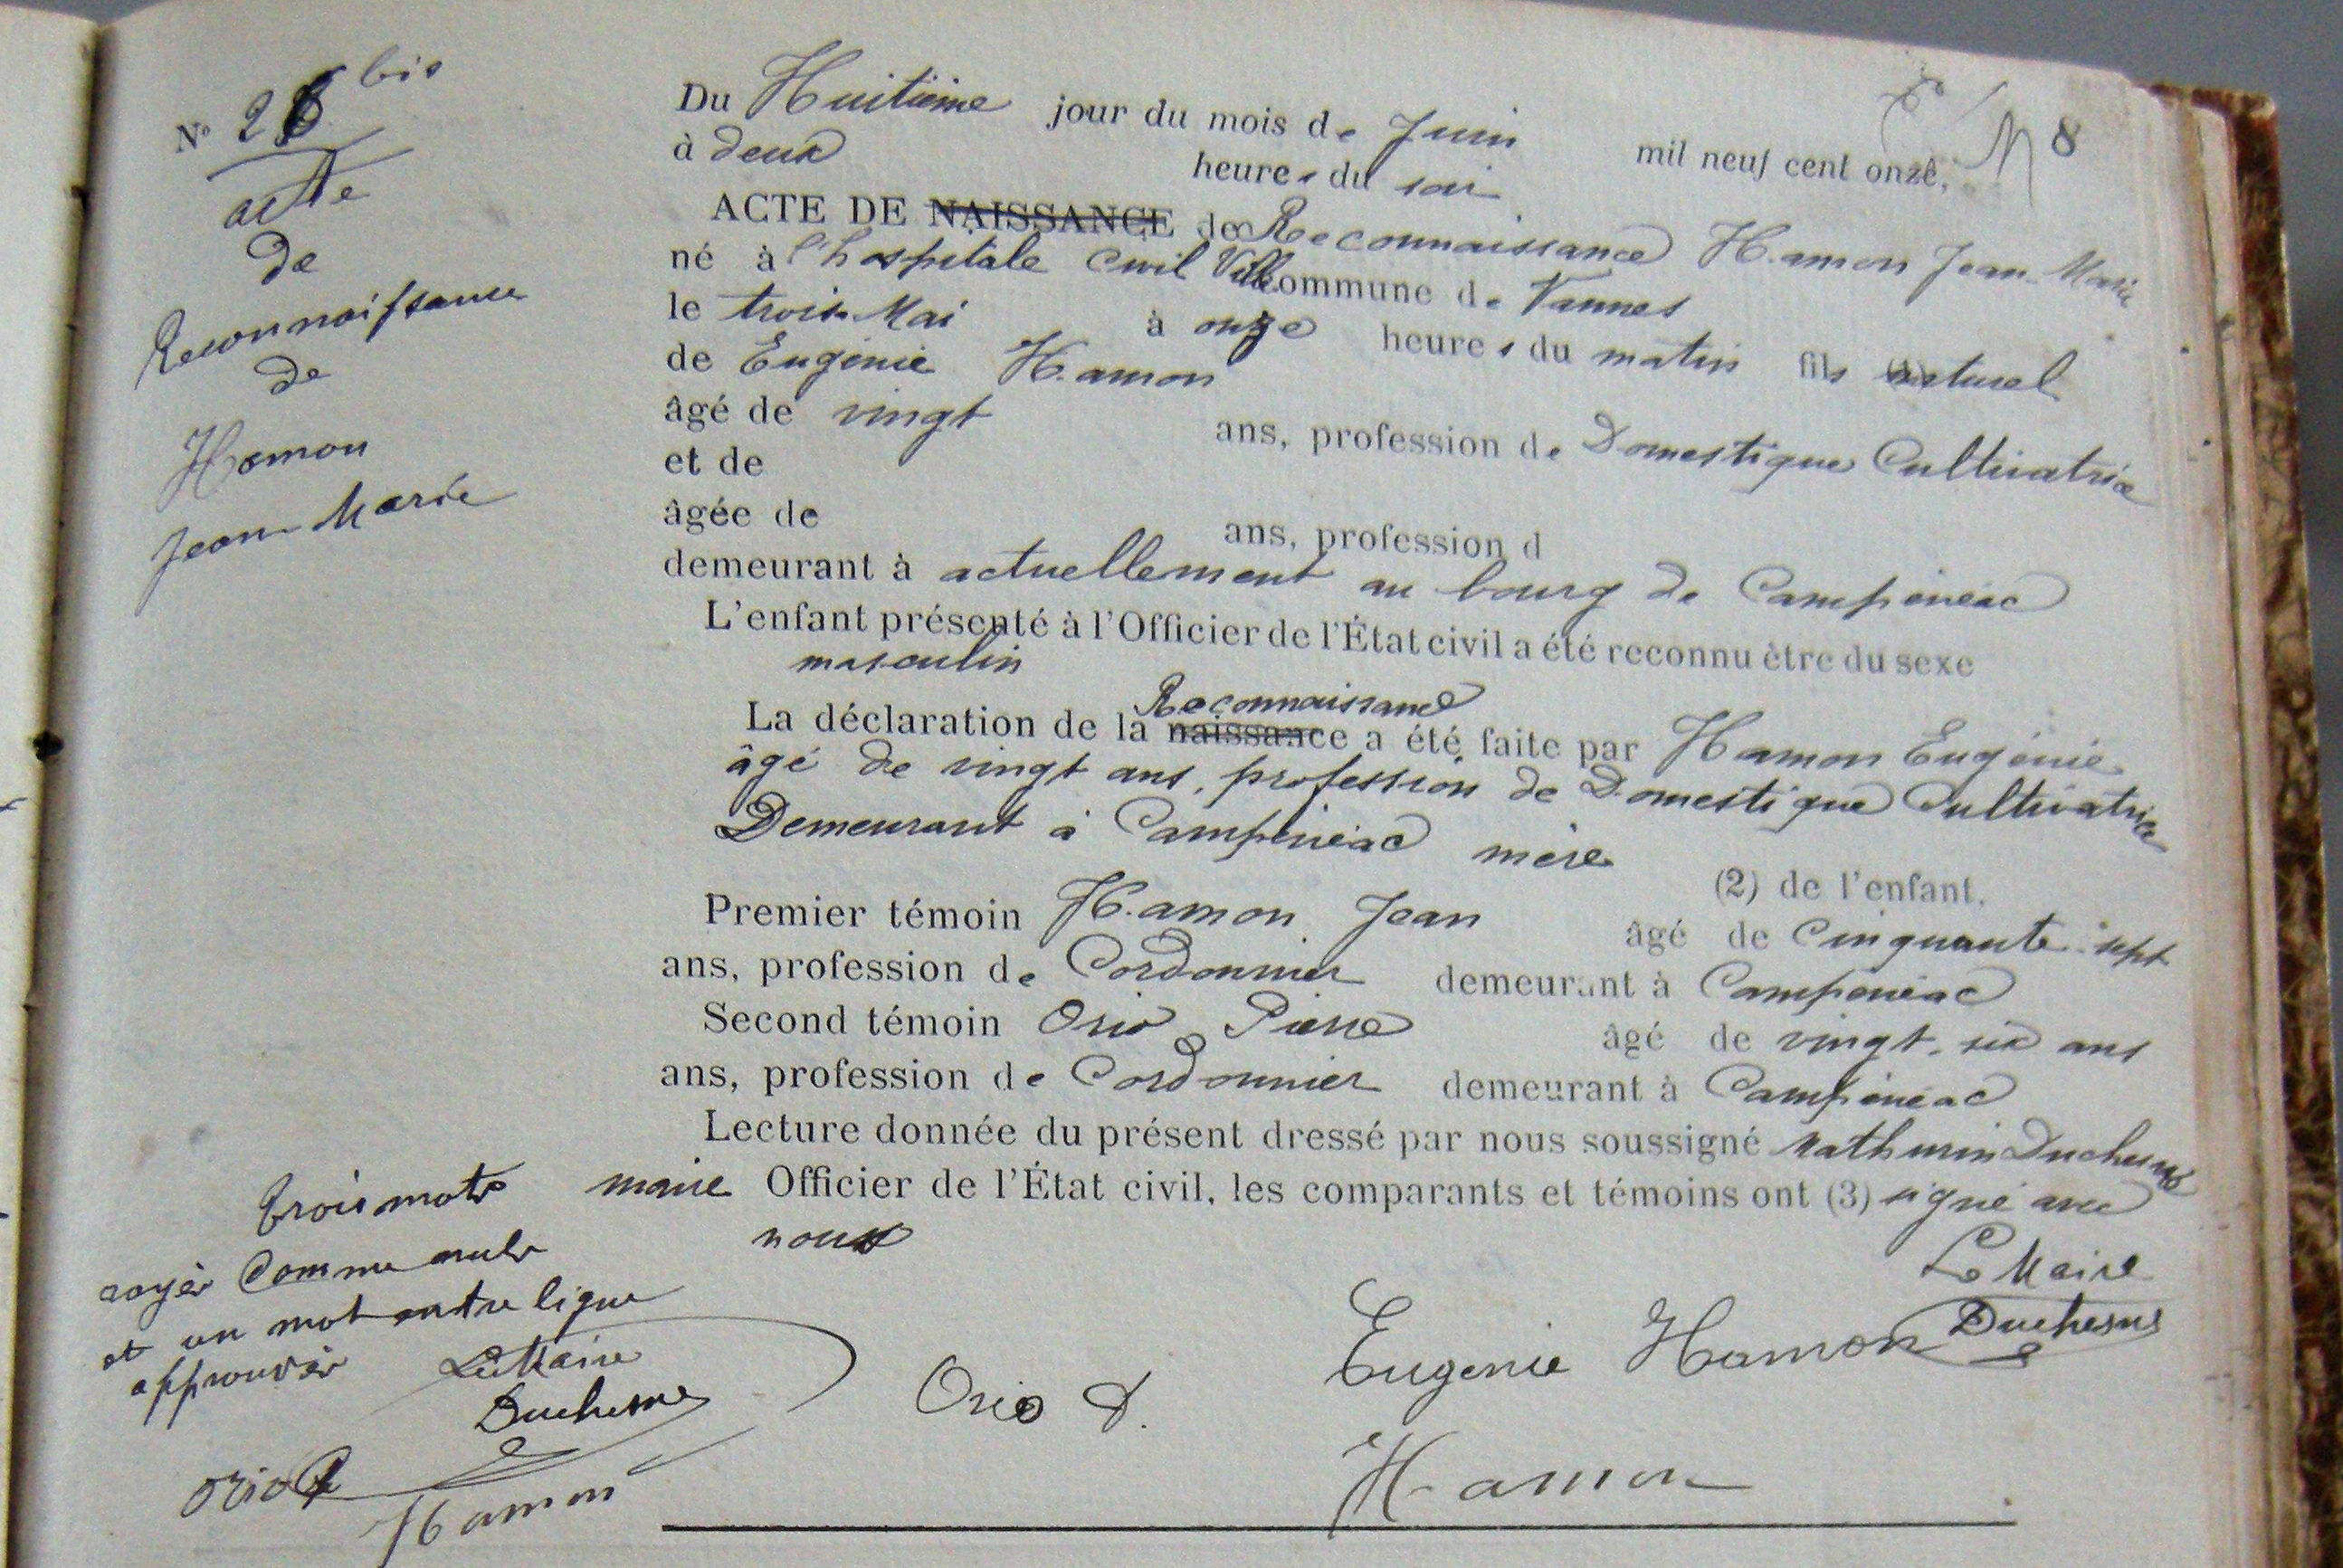 N° 26 bis
acte
de
Reconnaissance
de
Hamon
Jean Marie
8
Du Huitième jour du mois de Juin mil neuf cent onze,
à deux heures du soir
ACTE DE NAISSANCE de Reconnaissance Hamon Jean-Marie
né à l'hospitale Civil Ville commune de Vannes
le trois Mai à onze heures du matin fils naturel
de Eugénie Hamon
âgé de vingt ans, profession de Domestique Cultivatrice
et de
âgée de ans, profession d
demeurant à actuellement au bourg de Campénéac
L'enfant présenté à l'Officier de l'État civil a été reconnu être du sexe
masculin
Reconnaissance
La déclaration de la naissance a été faite par Hamon Eugénie
âgé de vingt ans, profession de Domestique Cultivatrice
Demeurant à Campénéac mère (2) de l'enfant.
Premier témoin Hamon Jean âgé de Cinquante-sept
ans, profession de Cordonnier demeurant à Campénéac
Second témoin Orio Pierre âgé de vingt-six ans
ans, profession de Cordonnier demeurant à Campénéac
Lecture donnée du présent dressé par nous soussigné Mathurin Duchesne
maire Officier de l'État civil, les comparants et témoins ont (3) signé avec
nous
trois mots
rayés Comme nuls
et un mot entre ligne
approuvés Le Maire
Duchesne
Orio P
Hamon
Le Maire
Eugenie Hamon Duchesne
Orio P.
Hamon